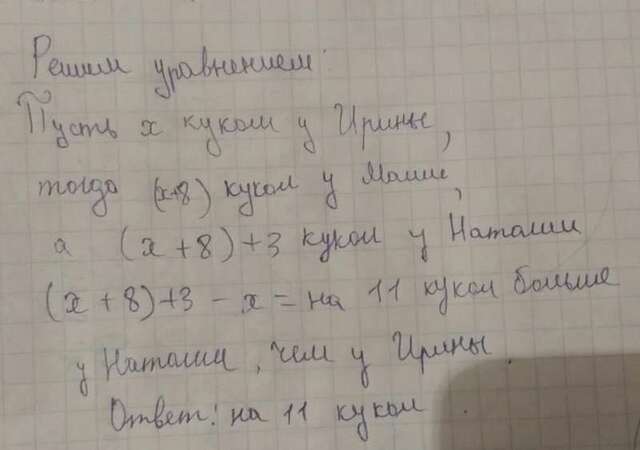 Решим уравнением:
Пусть x кукол у Ирины,
тогда (x+8) кукол у Маши,
а (x+8)+3 кукол у Наташи
(x+8)+3-x= на 11 кукол больше
у Наташи, чем у Ирины.
Ответ: на 11 кукол.